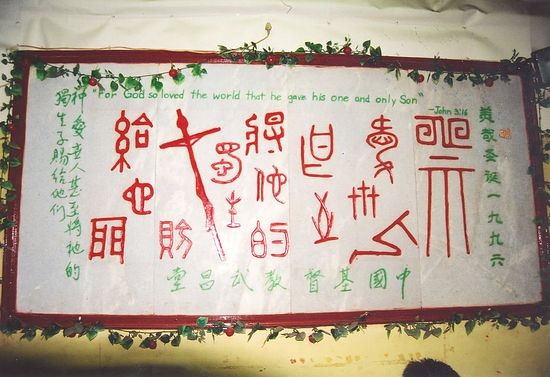 "For God so loved the world that he gave his one and only Son"
—John 3:16
圣诞一九九六
神
愛世人
甚至
將他的
獨生
子賜
給他們
神愛世人甚至將他的
獨生子賜给他们
中國基督教武昌堂